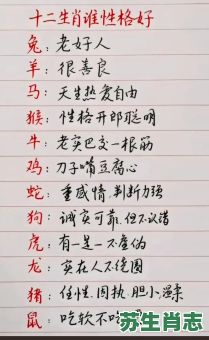 十二生肖谁性格好
兔：老好人
羊：很善良
马：天生热爱自由
猴：性格开郎聪明
牛：老实巴交一根筋
鸡：刀子嘴豆腐心
蛇：重感情，判断力强
狗：诚实可靠，但不认谱
虎：有一是一不虚伪
龙：实在人不绕圈
猪：任性，固执，胆小
鼠：吃软不吃
苏生肖志